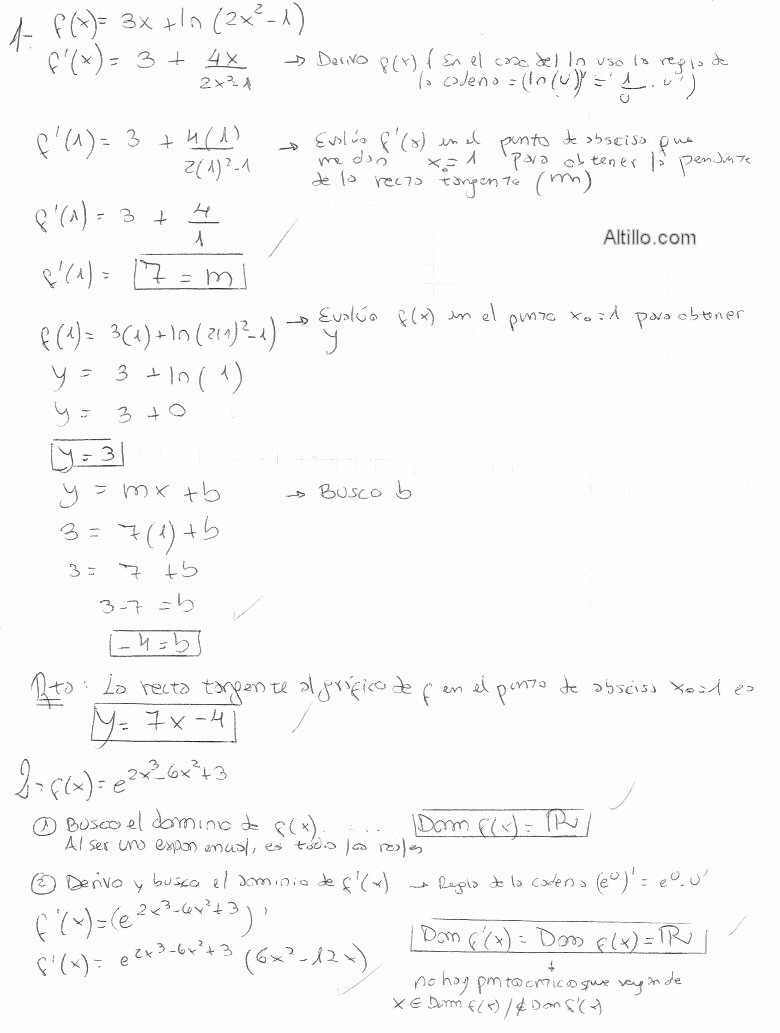 1- f(x) = 3x + ln (2x² - 1)
f'(x) = 3 + 4x/(2x²-1) → Derivo f(x) ( En el caso del ln uso la regla de
la cadena = (ln(u))' = 1/u · u')
f'(1) = 3 + 4(1)/(2(1)²-1) → Evalúo f'(x) en el punto de abscisa que
me dan x₀ = 1 para obtener la pendiente
de la recta tangente (m)
f'(1) = 3 + 4/1
Altillo.com
f'(1) = 7 = m
f(1) = 3(1) + ln(2(1)²-1) → Evalúo f(x) en el punto x₀=1 para obtener
y
y = 3 + ln( 1)
y = 3 + 0
y = 3
y = mx + b → Busco b
3 = 7(1) + b
3 = 7 + b
3-7 = b
-4 = b
Rta: La recta tangente al gráfico de f en el punto de abscisa x₀=1 es
y = 7x - 4
2- f(x) = e^(2x³-6x²+3)
① Busco el dominio de f(x). ... Dom f(x) = ℝ
Al ser una exponencial, es todos los reales
② Derivo y busco el dominio de f'(x) → Regla de la cadena (e^u)' = e^u · u'
f'(x) = (e^(2x³-6x²+3))'
Dom f'(x) = Dom f(x) = ℝ
f'(x) = e^(2x³-6x²+3) (6x² - 12x)
↓
no hay puntos críticos que vengan de
x ∈ Dom f(x) / ∉ Dom f'(x)